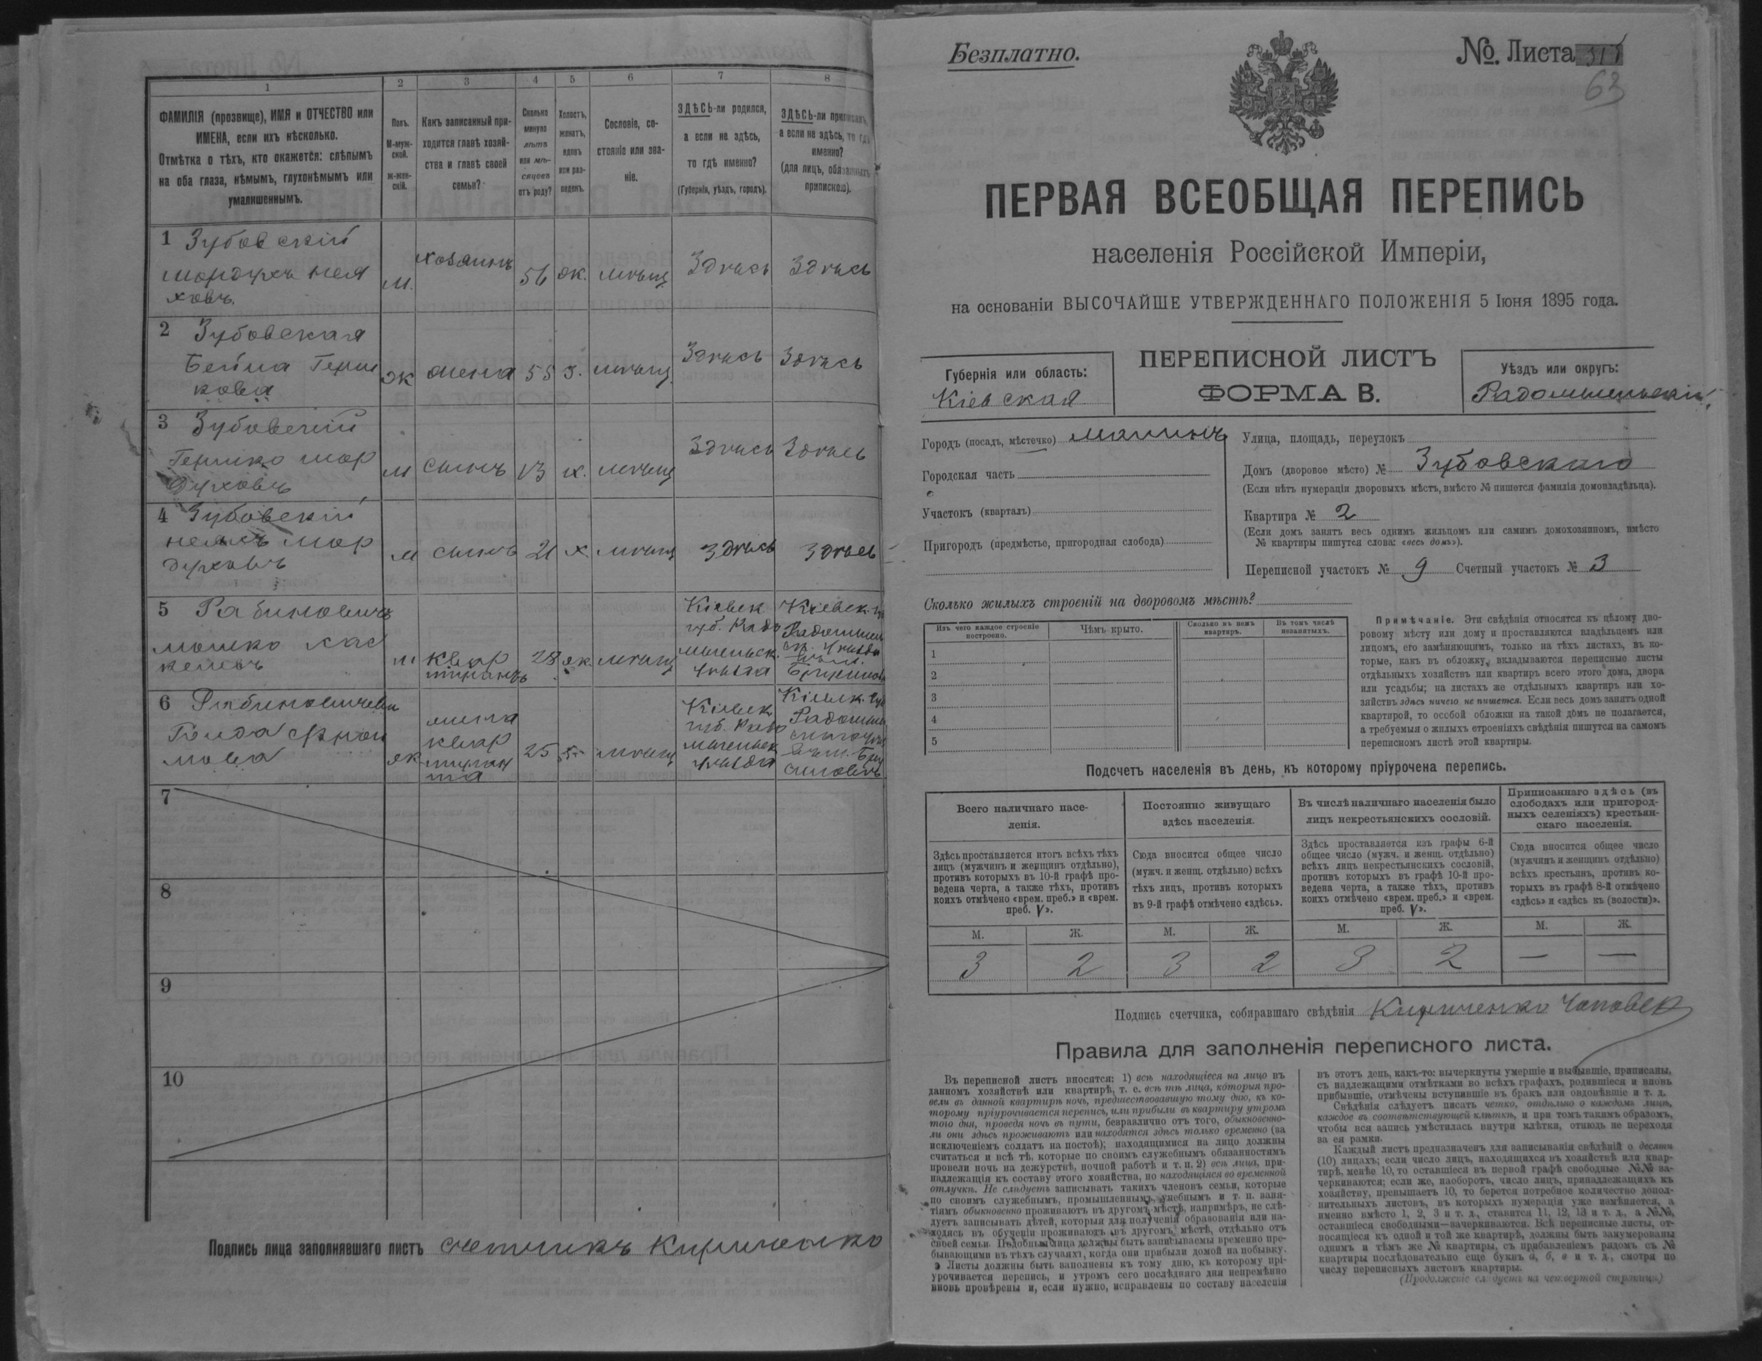 1
2
3
4
5
6
7
8
ФАМИЛІЯ (прозвище), ИМЯ и ОТЧЕСТВО или
ИМЕНА, если ихъ нѣсколько.
Отмѣтка о тѣхъ, кто окажется: слѣпымъ
на оба глаза, нѣмымъ, глухонѣмымъ или
умалишеннымъ.
Полъ.
М-муж-
ской.
Ж-жен-
скій.
Какъ записанный при-
ходится главѣ хозяй-
ства и главѣ своей
семьи?
Сколько
минуло
лѣтъ
или мѣ-
сяцевъ
отъ роду?
Холостъ,
женатъ,
вдовъ
или раз-
веденъ.
Сословіе, со-
стояніе или зва-
ніе.
ЗДѢСЬ-ли родился,
а если не здѣсь,
то гдѣ именно?
(Губернія, уѣздъ, городъ).
ЗДѢСЬ-ли приписанъ,
а если не здѣсь, то гдѣ
именно?
(для лицъ, обязанныхъ
припискою).
1 Зубовскій
Мордухъ
ховъ
м.
хозяинъ
56
ж.
мѣщ
Здѣсь
Здѣсь
2 Зубовская
Бейла Герш
кова
ж
жена
55
з.
мѣщ.
Здѣсь
Здѣсь
3 Зубовскій
Гершко Мор
духовъ
м
сынъ
13
х.
мѣщ
Здѣсь
Здѣсь
4 Зубовскій
Мор
духовъ
м
сынъ
21
х
мѣщ
Здѣсь
Здѣсь
5 Рабиновичъ
Мошко Хас
келевъ
м
квар
тирантъ
28
ж.
мѣщ
Кіевск
губ. Радо
мысльск.
уѣзда
Кіевск. гу
Радомысл
уѣзда
6 Рабиновичева
Фрои
мова
ж
жена
квар
тиран
та
25
мѣщ
Кіевск
губ. Радо
мысльск
уѣзда
Кіевск. гу
Радомысл
7
8
9
10
Подпись лица заполнявшаго листъ счетчикъ Кириченко
Безплатно.
№ Листа
63
ПЕРВАЯ ВСЕОБЩАЯ ПЕРЕПИСЬ
населенія Россійской Имперіи,
на основаніи ВЫСОЧАЙШЕ УТВЕРЖДЕННАГО ПОЛОЖЕНІЯ 5 Іюня 1895 года.
Губернія или область:
Кіевская
ПЕРЕПИСНОЙ ЛИСТЪ
ФОРМА В.
Уѣздъ или округъ:
Радомысльскій
Городъ (посадъ, мѣстечко) Малинъ
Городская часть
Участокъ (кварталъ)
Пригородъ (предмѣстье, пригородная слобода)
Улица, площадь, переулокъ
Домъ (дворовое мѣсто) № Зубовскаго
(Если нѣтъ нумераціи дворовыхъ мѣстъ, вмѣсто № пишется фамилія домовладѣльца).
Квартира № 2
(Если домъ занятъ весь однимъ жильцомъ или самимъ домохозяиномъ, вмѣсто
№ квартиры пишутся слова: «весь домъ»).
Переписной участокъ № 9 Счетный участокъ № 3
Сколько жилыхъ строеній на дворовомъ мѣстѣ?
Изъ чего каждое строеніе
построено.
Чѣмъ крыто.
Сколько въ немъ
квартиръ.
Въ томъ числѣ
незанятыхъ.
1
2
3
4
5
Примѣчаніе. Эти свѣдѣнія относятся къ цѣлому дво-
ровому мѣсту или дому и проставляются владѣльцемъ или
лицомъ, его замѣняющимъ, только на тѣхъ листахъ, въ ко-
торые, какъ въ обложку, вкладываются переписные листы
отдѣльныхъ хозяйствъ или квартиръ всего этого дома, двора
или усадьбы; на листахъ же отдѣльныхъ квартиръ или хо-
зяйствъ здѣсь ничего не пишется. Если весь домъ занятъ одной
квартирой, то особой обложки на такой домъ не полагается,
а требуемыя о жилыхъ строеніяхъ свѣдѣнія пишутся на самомъ
переписномъ листѣ этой квартиры.
Подсчетъ населенія въ день, къ которому пріурочена перепись.
Всего наличнаго насе-
ленія.
Постоянно живущаго
здѣсь населенія.
Въ числѣ наличнаго населенія было
лицъ некрестьянскихъ сословій.
Приписаннаго здѣсь (въ
слободахъ или пригород-
ныхъ селеніяхъ) крестьян-
скаго населенія.
Здѣсь проставляется итогъ всѣхъ тѣхъ
лицъ (мужчинъ и женщинъ отдѣльно),
противъ которыхъ въ 10-й графѣ про-
ведена черта, а также тѣхъ, противъ
коихъ отмѣчено «врем. преб.» и «врем.
преб. V».
Сюда вносится общее число
(мужч. и женщ. отдѣльно) всѣхъ
тѣхъ лицъ, противъ которыхъ
въ 9-й графѣ отмѣчено «здѣсь».
Здѣсь проставляется изъ графы 6-й
общее число (мужч. и женщ. отдѣльно)
всѣхъ лицъ некрестьянскихъ сословій,
противъ которыхъ въ графѣ 10-й про-
ведена черта, а также тѣхъ, противъ
коихъ отмѣчено «врем. преб.» и «врем.
преб. V».
Сюда вносится общее число
(мужчинъ и женщинъ отдѣльно)
всѣхъ крестьянъ, противъ ко-
торыхъ въ графѣ 8-й отмѣчено
«здѣсь» и «здѣсь къ (волости)».
М. Ж. М. Ж. М. Ж. М. Ж.
3 2 3 2 3 2 — —
Подпись счетчика, собиравшаго свѣдѣнія Кириченко
Правила для заполненія переписного листа.
Въ переписной листъ вносятся: 1) всѣ находящіеся на лицо въ
данномъ хозяйствѣ или квартирѣ, т. е. всѣ тѣ лица, которыя про-
вели въ данной квартирѣ ночь, предшествовавшую тому дню, къ ко-
торому пріурочивается перепись, или прибыли въ квартиру утромъ
того дня, проведя ночь въ пути, безразлично отъ того, обыкновенно-
ли они здѣсь проживаютъ или находятся здѣсь только временно (за
исключеніемъ солдатъ на постоѣ); находящимися на лицо должны
считаться и всѣ тѣ, которые по своимъ служебнымъ обязанностямъ
провели ночь на дежурствѣ, ночной работѣ и т. п. 2) всѣ лица, при-
надлежащія къ составу этого хозяйства, но находящіяся во временной
отлучкѣ. Не слѣдуетъ записывать такихъ членовъ семьи, которые
по своимъ служебнымъ, промышленнымъ, учебнымъ и т. п. заня-
тіямъ обыкновенно проживаютъ въ другомъ мѣстѣ, напримѣръ, не слѣ-
дуетъ записывать дѣтей, которыя для полученія образованія или на-
ходясь въ обученіи проживаютъ въ другомъ мѣстѣ, отдѣльно отъ
своей семьи. Подобныя лица должны быть записываемы временно пре-
бывающими въ тѣхъ случаяхъ, когда они прибыли домой на побывку.
Листы должны быть заполнены къ тому дню, къ которому прі-
урочивается перепись, и утромъ сего послѣдняго дня непремѣнно
вновь провѣрены и, если нужно, исправлены по составу населенія
въ этотъ день, какъ-то: вычеркнуты умершіе и выбывшіе, приписаны,
съ надлежащими отмѣтками во всѣхъ графахъ, родившіеся и вновь
прибывшіе, отмѣчены вступившіе въ бракъ или овдовѣвшіе и т. д.
Свѣдѣнія слѣдуетъ писать четко, отдѣльно о каждомъ лицѣ,
каждое въ соотвѣтствующей клѣткѣ, и при томъ такимъ образомъ,
чтобы вся запись умѣстилась внутри клѣтки, отнюдь не переходя
за ея рамки.
Каждый листъ предназначенъ для записыванія свѣдѣній о десяти
(10) лицахъ; если число лицъ, находящихся въ хозяйствѣ или квар-
тирѣ, менѣе 10, то оставшіеся въ первой графѣ свободные №№ за-
черкиваются; если же, наоборотъ, число лицъ, принадлежащихъ къ
хозяйству, превышаетъ 10, то берется потребное количество допол-
нительныхъ листовъ, въ которыхъ нумерація уже измѣняется, а
именно вмѣсто 1, 2, 3 и т. д., ставится 11, 12, 13 и т. д., а №№,
оставшіеся свободными—зачеркиваются. Всѣ переписные листы, от-
носящіеся къ одной и той же квартирѣ, должны быть занумерованы
однимъ и тѣмъ же № квартиры, съ прибавленіемъ рядомъ съ №
квартиры послѣдовательно еще буквъ а, б, в и т. д., смотря по
числу переписныхъ листовъ квартиры.
(Продолженіе слѣдуетъ на четвертой страницѣ)